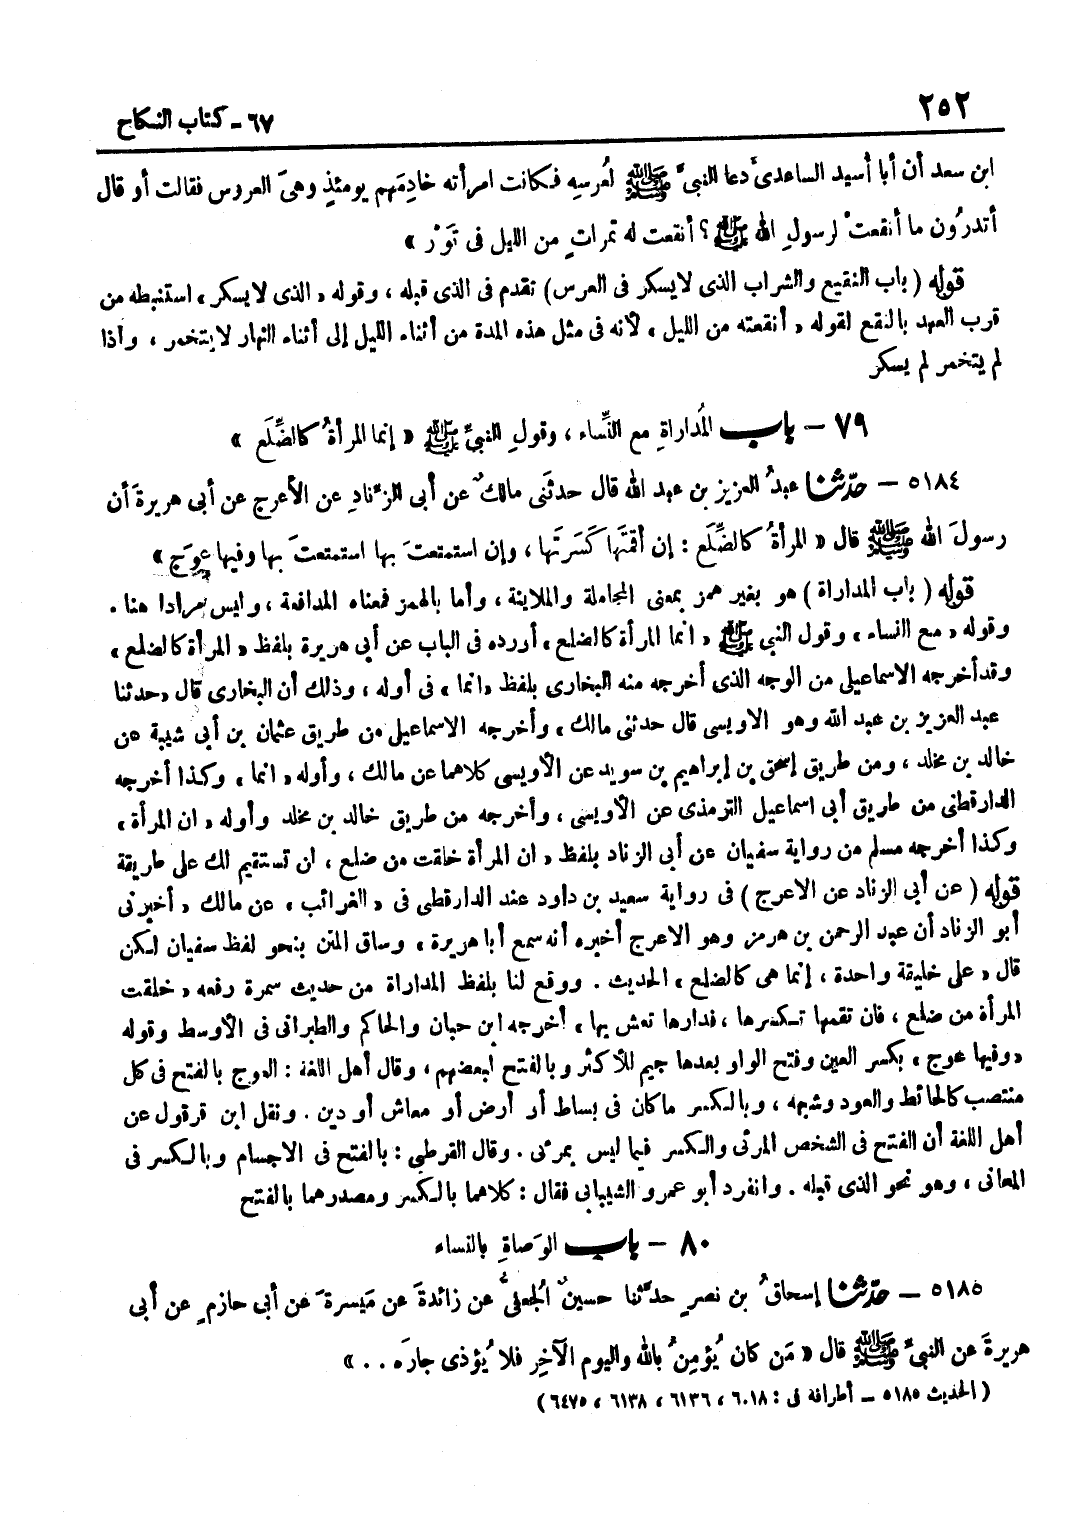 ٢٥٢
٦٧ - كتاب النكاح
ابن سعد أن أبا أسيد الساعدىَّ دعا النبىَّ ﷺ لعُرسِهِ فكانت امرأته خادِمَهم يومئذٍ وهىَ العروس فقالت أو قال
أتدرُون ما أنقعتْ لرسولِ الله ﷺ ؟ أنقعت له تمراتٍ من الليل فى تَوْر »
قوله ( باب النقيع والشراب الذى لا يسكر فى العرس ) تقدم فى الذى قبله ، وقوله « الذى لا يسكر » استنبطه من
قرب العهد بالنقع لقوله « أنقعته من الليل » لأنه فى مثل هذه المدة من أثناء الليل إلى أثناء النهار لا يتخمر ، واذا
لم يتخمر لم يسكر
٧٩ – باب المُداراةِ مع النِّساء ، وقولِ النبىِّ ﷺ « إنما المرأةُ كالضِّلَع »
٥١٨٤ – حدّثنا عبدُ العزيز بن عبد الله قال حدثَنى مالكٌ عن أبى الزنادِ عن الأعرج عن أبى هريرةَ أن
رسولَ الله ﷺ قال « المرأةُ كالضِّلَع : إن أقمْتَها كَسَرتَها ، وإن استمتعتَ بها استمتعتَ بها وفيها عِوَج »
قوله ( باب المداراة ) هو بغير همز بمعنى المجاملة والملاينة ، وأما بالهمز فمعناه المدافعة ، وليس مرادا هنا .
وقوله « مع النساء ، وقول النبى ﷺ « انما المرأة كالضلع » أورده فى الباب عن أبى هريرة بلفظ « المرأة كالضلع »
وقد أخرجه الاسماعيلى من الوجه الذى أخرجه منه البخارى بلفظ « انما » فى أوله ، وذلك أن البخارى قال « حدثنا
عبد العزيز بن عبد الله وهو الاويسى قال حدثنى مالك » وأخرجه الاسماعيلى من طريق عثمان بن أبى شيبة عن
خالد بن مخلد ، ومن طريق إسحق بن إبراهيم بن سويد عن الأويسى كلاهما عن مالك ، وأوله « انما » وكذا أخرجه
الدارقطنى من طريق أبى اسماعيل الترمذى عن الأويسى ، وأخرجه من طريق خالد بن مخلد وأوله « ان المرأة »
وكذا أخرجه مسلم من رواية سفيان عن أبى الزناد بلفظ « ان المرأة خلقت من ضلع ، لن تستقيم لك على طريقة
قوله ( عن أبى الزناد عن الاعرج ) فى رواية سعيد بن داود عند الدارقطنى فى « الغرائب » عن مالك « أخبرنى
أبو الزناد أن عبد الرحمن بن هرمز وهو الاعرج أخبره أنه سمع أبا هريرة » وساق المتن بنحو لفظ سفيان لكن
قال « على خليقة واحدة ، إنما هى كالضلع » الحديث . ووقع لنا بلفظ المداراة من حديث سمرة رفعه « خلقت
المرأة من ضلع ، فان تقمها تكسرها ، فدارها تعش بها » أخرجه ابن حبان والحاكم والطبرانى فى الأوسط وقوله
« وفيها عوج » بكسر العين وفتح الواو بعدها جيم للأكثر وبالفتح لبعضهم ، وقال أهل اللغة : العوج بالفتح فى كل
منتصب كالحائط والعود وشبهه ، وبالكسر ما كان فى بساط أو أرض أو معاش أو دين . ونقل ابن قرقول عن
أهل اللغة أن الفتح فى الشخص المرئى والكسر فيما ليس بمرئى . وقال القرطبى : بالفتح فى الاجسام وبالكسر فى
المعانى ، وهو نحو الذى قبله . وانفرد أبو عمرو الشيبانى فقال : كلاهما بالكسر ومصدرهما بالفتح
٨٠ – باب الوَصاةِ بالنساء
٥١٨٥ – حدّثنا إسحاقُ بن نصرٍ حدَّثنا حسينٌ الجُعفىُّ عن زائدةَ عن مَيسرةَ عن أبى حازمٍ عن أبى
هريرةَ عن النبىِّ ﷺ قال « مَن كان يُؤمِنُ بالله واليوم الآخِر فلا يُؤذى جارَه . . »
( الحديث ٥١٨٥ – أطرافه فى : ٦٠١٨ ، ٦١٣٦ ، ٦١٣٨ ، ٦٤٧٥ )